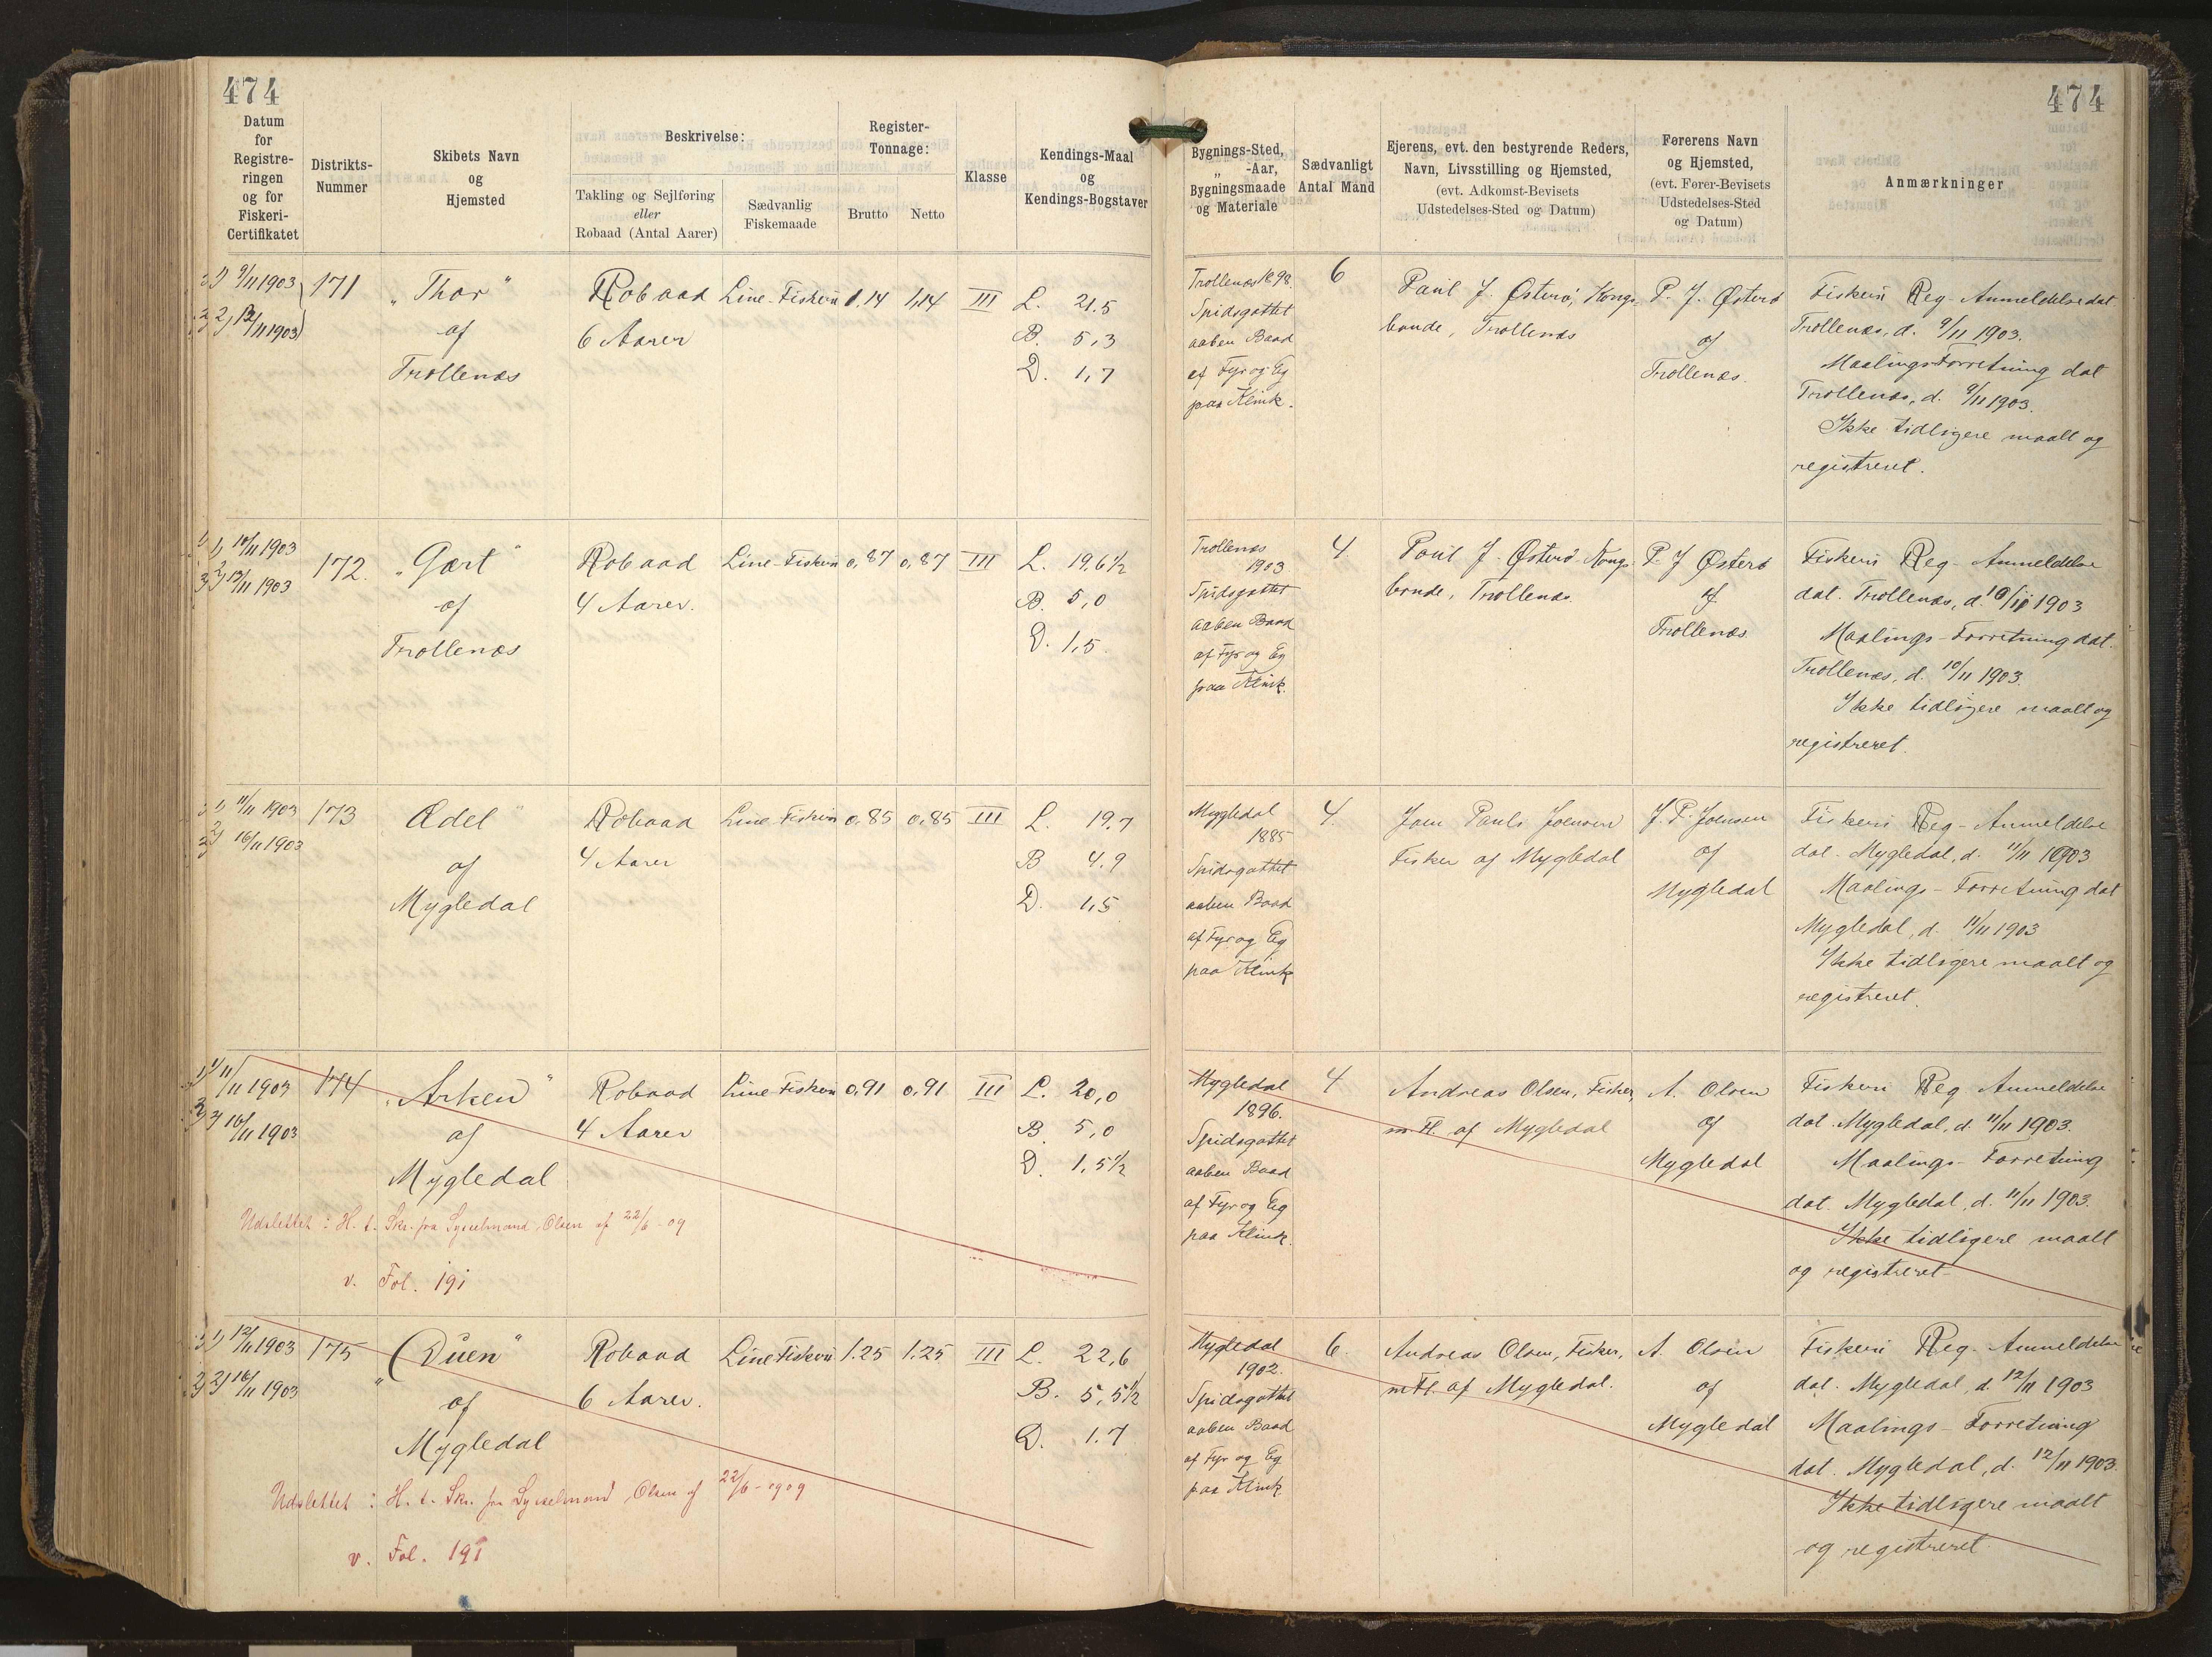 474
474
Datum
for
Registre-
ringen
og for
Fiskeri-
Certifikatet
Distrikts-
Nummer
Skibets Navn
og
Hjemsted
Beskrivelse:
Takling og Sejlføring
eller
Robaad (Antal Aarer)
Sædvanlig
Fiskemaade
Register-
Tonnage:
Brutto
Netto
Klasse
Kendings-Maal
og
Kendings-Bogstaver
Bygnings-Sted,
„ -Aar,
Bygningsmaade
og Materiale
Sædvanligt
Antal Mand
Ejerens, evt. den bestyrende Reders,
Navn, Livsstilling og Hjemsted,
(evt. Adkomst-Bevisets
Udstedelses-Sted og Datum)
Førerens Navn
og Hjemsted,
(evt. Fører-Bevisets
Udstedelses-Sted
og Datum)
Anmærkninger
1) 9/11 1903
2) 13/11 1903
171
„Thor"
of
Trollenæs
Robaad
6 Aarer
Line-Fiskeri
1,14
1,14
III
L. 21.5
B. 5,3
D. 1,7
Trollenæs 1898.
Spidsgattet
aaben Baad
af Fyr og Eg
paa Klink.
6
Poul J. Østerø, Kongs-
bonde, Trollenæs
P. J. Østerø
of
Trollenæs.
Fiskeri Reg-Anmeldelse dat
Trollenæs, d. 9/11 1903.
Maalings Forretning dat
Trollenæs, d. 9/11 1903.
Ikke tidligere maalt og
registreret.
1) 10/11 1903
2) 13/11 1903
172.
„Gært"
of
Trollenæs
Robaad
4 Aarer.
Line-Fiskeri
0,87
0,87
III
L. 19,6½
B. 5,0
D. 1,5
Trollenæs
1903
Spidsgattet
aaben Baad
af Fyr og Eg
paa Klink.
4.
Poul J. Østerø Kongs-
bonde, Trollenæs.
P. J Østerø
of
Trollenæs
Fiskeri Reg-Anmeldelse
dat. Trollenæs, d. 10/11 1903
Maalings-Forretning dat.
Trollenæs, d. 10/11 1903.
Ikke tidligere maalt og
registreret.
1) 11/11 1903
2) 16/11 1903
173
Ædel"
of
Mygledal
Robaad
4 Aarer
Line Fiskeri
0,85
0,85
III
L. 19,7
B 4.9
D. 1,5
Mygledal
1885
Spidsgattet
aaben Baad
af Fyr og Eg
paa Klink
4.
Joen Pauls Joensen
Fisker af Mygledal
J. P. Joensen
of
Mygledal
Fiskeri Reg-Anmeldelse
dat. Mygledal, d. 11/11 1903
Maalings-Forretning dat
Mygledal, d. 11/11 1903
Ikke tidligere maalt og
registreret.
1) 11/11 1903
2) 16/11 1903
174
„Arken"
of
Mygledal
Robaad
4 Aarer
Line Fiskeri
0,91
0,91
III
L. 20,0
B. 5,0
D. 1,5½
Mygledal
1896.
Spidsgattet
aaben Baad
af Fyr og Eg
paa Klink.
4.
Andreas Olsen, Fisker,
m. Fl. af Mygledal
A. Olsen
of
Mygledal
Fiskeri Reg Anmeldelse
dat. Mygledal, d. 11/11 1903.
Maalings-Forretning
dat. Mygledal, d. 11/11 1903.
Ikke tidligere maalt
og registreret
Udslettet: H. t. Skr. fra Sysselmand Olsen af 22/6-09
v. Fol. 191
1) 12/11 1903
2) 16/11 1903
175
„Duen"
of
Mygledal
Robaad
6 Aarer.
Line Fiskeri
1.25
1.25
III
L. 22,6
B. 5,5½
D. 1.7
Mygledal
1902.
Spidsgattet
aaben Baad
af Fyr og Eg
paa Klink
6.
Andreas Olsen, Fisker,
m Fl. af Mygledal.
A. Olsen
of
Mygledal
Fiskeri Reg-Anmeldelse
dat. Mygledal, d. 12/11 1903
Maalings-Forretning
dat. Mygledal, d. 12/11 1903.
Ikke tidligere maalt
og registreret
Udslettet: H. t. Skr. fra Sysselmand Olsen af 22/6-1909
v. Fol. 191